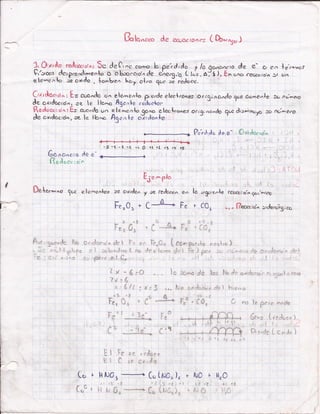 Balanceo de ecuaciones (Downey)
1. Óxido reducción: Se define como: la perdida y la ganancia de e⁻ o en términos
físicos desprendimiento o absorción de energía (Luz, Δ, ). En una reacción si un
elemento se oxida, también hay otro que se reduce.
Oxidación: Es cuando un elemento pierde electrones originando que aumente su número
de oxidación, se le llama Agente reductor
Reducción: Es cuando un elemento gana electrones originando que disminuya su número
de oxidación, se le llama Agente oxidante
Perdida de e⁻ Oxidación
-5 -4 -3 -2 -1 0 +1 +2 +3 +4 +5
Ganancia de e⁻
Reducción
Ejemplo
Determina que elementos se oxidan y se reducen en la siguiente reacción química
Fe₂O₃ + C → Fe + CO₂ ... Reacción siderúrgica
Fe₂O₃ + C⁰ → Fe⁰ + CO₂
2x - 6 = 0 ... la suma de los No de oxidación es igual a cero
2x = 6
x = 6/2 ; x = 3 ... No oxidación del hierro
Fe₂O₃ + C⁰ → Fe⁰ + CO₂ O no le pasa nada
Fe⁺³ + 3e⁻ Fe⁰ Gana (reduce)
C⁰ - 4e⁻ C⁺⁴ Pierde (oxida)
El Fe se reduce
El C se oxida
Cu + HNO₃ → Cu(NO₃)₂ + NO + H₂O